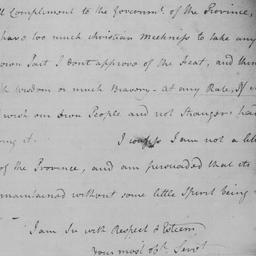 ll Compliment to the Governmt. of the Province,
have too much christian Meekness to take any
own Part I dont approve of the Feat, and thin
h Wisdom or much Bravery - at any Rate, If i
wish our own People and not Strangers had
ing it. I confess I am not a litt
of the Province, and am persuaded that its
maintained without some little Spirit being
I am Sir with Respect & Esteem
Your most obt. Servt